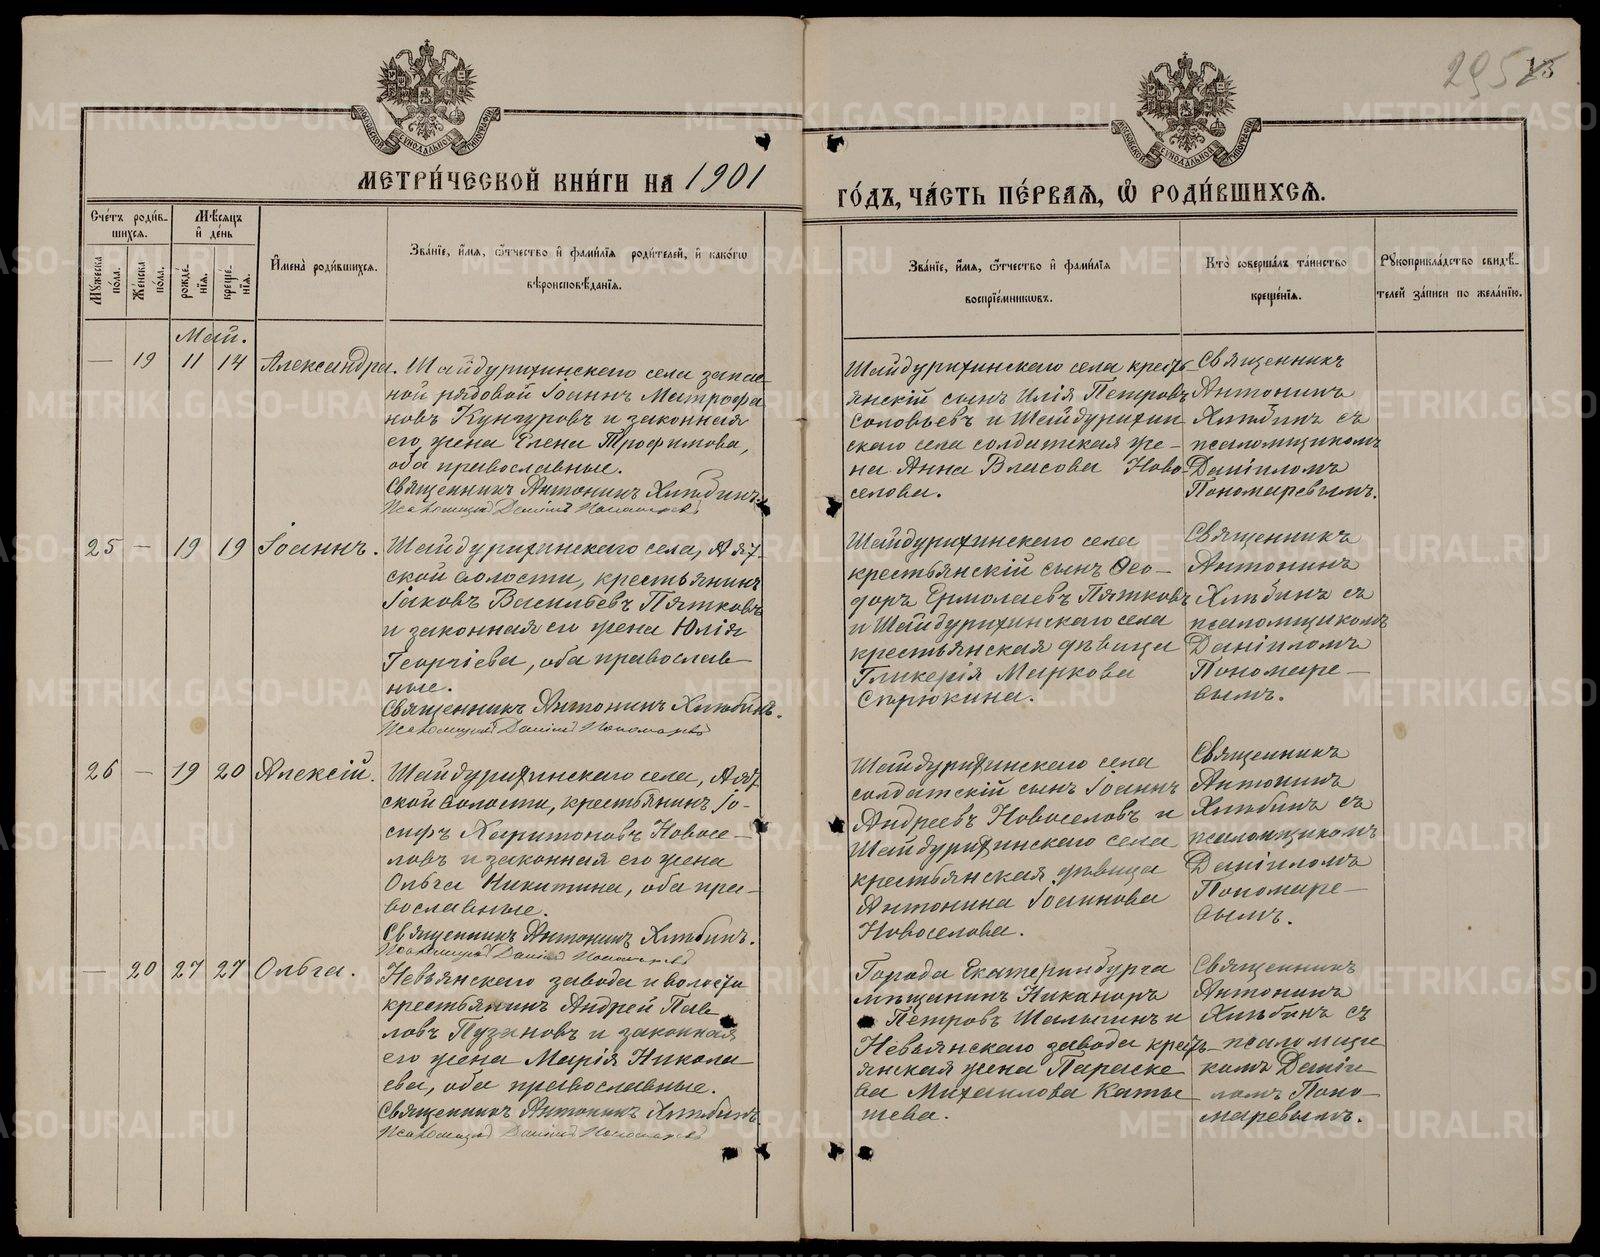 295
МЕТРИ́ЧЕСКОЙ КНИ́ГИ НА 1901
ГО́ДЪ, ЧА́СТЬ ПЕ́РВАЯ, Ѿ РОДИ́ВШИХСЯ.
Сче́тъ роди́в-
шихся.
Мѣсяцъ
и де́нь
Мꙋжеска по́ла.
Же́нска по́ла.
рожде́нїя.
креще́нїя.
И҆мена̀ роди́вшихся.
Зва́нїе, и҆́мя, ѻ҆́тчество и҆ фами́лїя роди́телей, и҆ како́гѡ
вѣроисповѣ́данїя.
Зва́нїе, и҆́мя, ѻ҆́тчество и҆ фами́лїя
воспрїе́мникѡвъ.
Кто̀ соверша́лъ та́инство
креще́нїя.
Рꙋкоприкла́дство свидѣ́-
телей за́писи по жела́нїю.
Май.
— 19 11 14 Александра.
Шайдурихинскаго села запас-
ной рядовой Іоаннъ Митрофа
новъ Кунгуровъ и законная
его жена Елена Трофимова,
оба православные.
Священникъ Антонинъ Хлѣбинъ.
Псаломщикъ Даніилъ Пономаревъ
Шайдурихинскаго села кресть-
янскій сынъ Илія Петровъ
Соловьевъ и Шайдурихин
скаго села солдатская же-
на Анна Власова Ново-
селова.
Священникъ
Антонинъ
Хлѣбинъ съ
псаломщикомъ
Даніиломъ
Пономаревымъ.
25 — 19 19 Іоаннъ.
Шайдурихинскаго села, Аят-
ской волости, крестьянинъ
Іаковъ Васильевъ Пятковъ
и законная его жена Юлія
Георгіева, оба православ-
ные.
Священникъ Антонинъ Хлѣбинъ.
Псаломщикъ Даніилъ Пономаревъ
Шайдурихинскаго села
крестьянскій сынъ Ѳео-
доръ Ермолаевъ Пятковъ
и Шайдурихинскаго села
крестьянская дѣвица
Гликерія Маркова
Сѣрюкина.
Священникъ
Антонинъ
Хлѣбинъ съ
псаломщикомъ
Даніиломъ
Пономаре-
вымъ.
26 — 19 20 Алексій.
Шайдурихинскаго села, Аят-
ской волости, крестьянинъ Іо-
сифъ Харитоновъ Новосе-
ловъ и законная его жена
Ольга Никитина, оба пра-
вославные.
Священникъ Антонинъ Хлѣбинъ.
Псаломщикъ Даніилъ Пономаревъ
Шайдурихинскаго села
солдатскій сынъ Іоаннъ
Андреевъ Новоселовъ и
Шайдурихинскаго села
крестьянская дѣвица
Антонина Іоаннова
Новоселова.
Священникъ
Антонинъ
Хлѣбинъ съ
псаломщикомъ
Даніиломъ
Пономаре-
вымъ.
— 20 27 27 Ольга.
Невьянскаго завода и волости
крестьянинъ Андрей Пав
ловъ Пузановъ и законная
его жена Марія Никола
ева, оба православные.
Священникъ Антонинъ Хлѣбинъ
Псаломщикъ Даніилъ Пономаревъ
Города Екатеринбурга
мѣщанинъ Никаноръ
Петровъ Шалыгинъ и
Невьянскаго завода кресть-
янская жена Параске
ва Михаилова Каты
шева.
Священникъ
Антонинъ
Хлѣбинъ съ
псаломщи
комъ Даніи
ломъ Поно-
маревымъ.